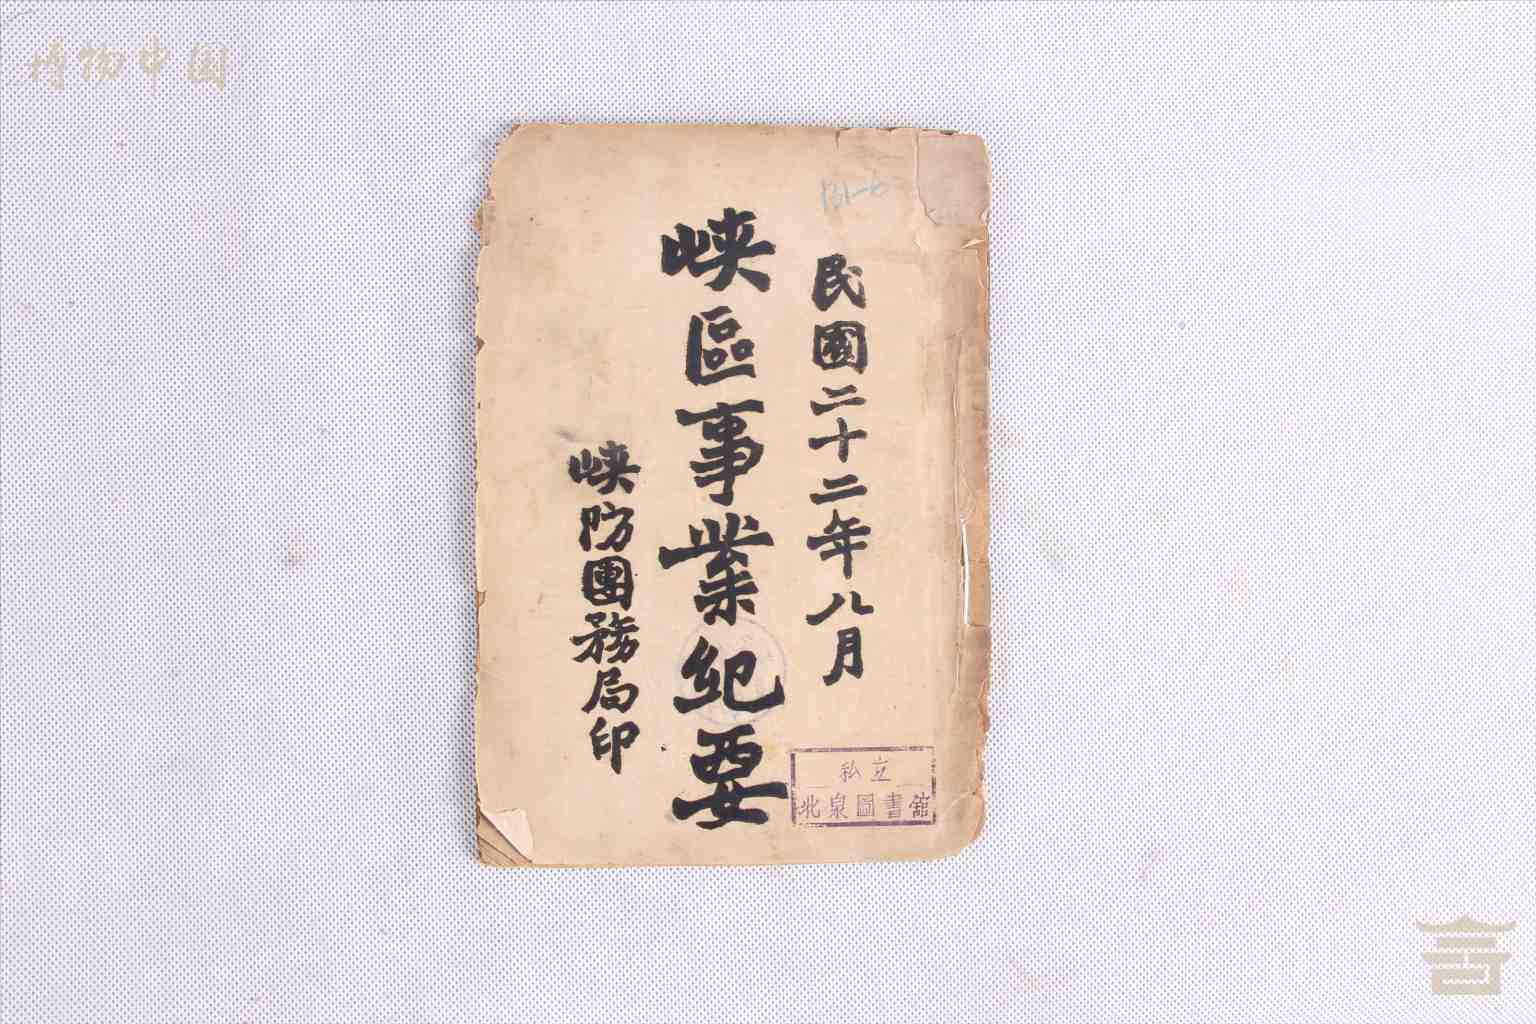 博物中国
131-6
民國二十二年八月
峽區事業紀要
峽防團務局印
私立
北泉圖書館